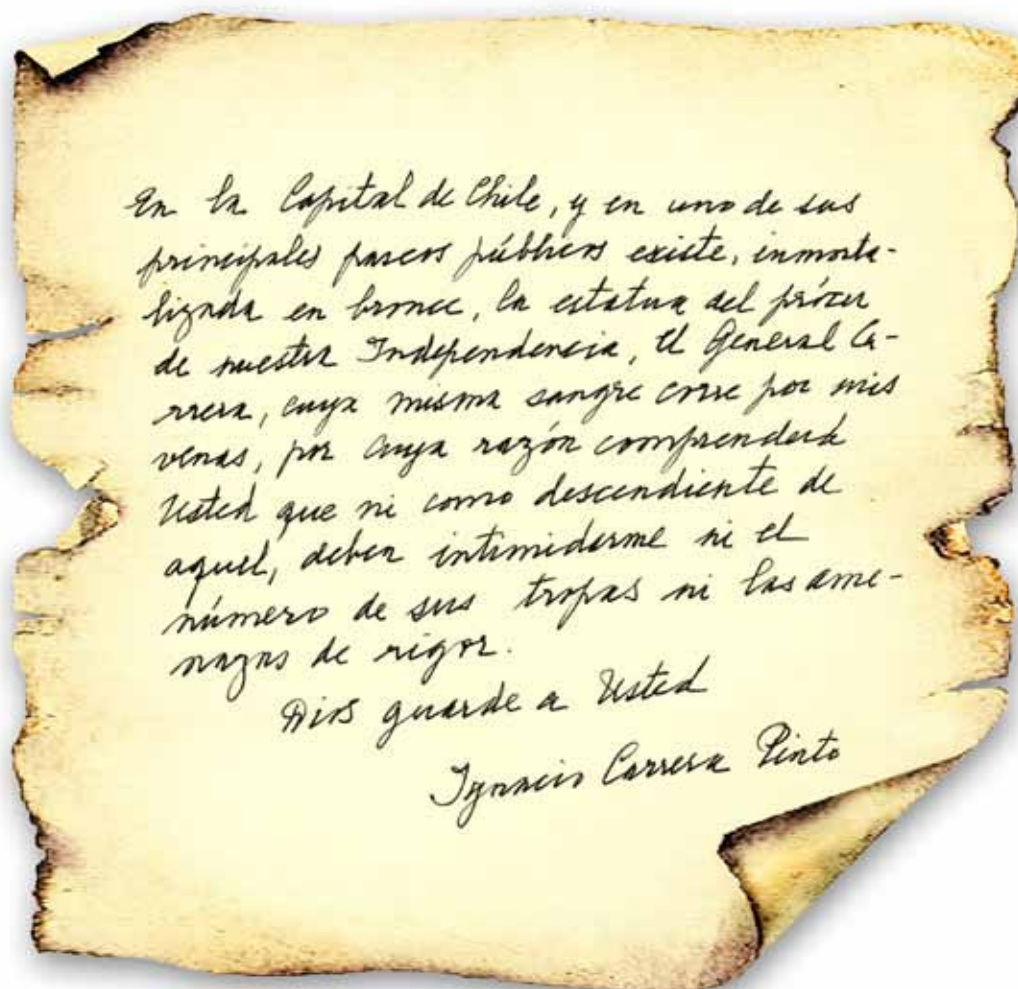 En la Capital de Chile, y en uno de sus
principales paseos públicos existe, inmorta-
lizada en bronce, la estatua del prócer
de nuestra Independencia, el General Ca-
rrera, cuya misma sangre corre por mis
venas, por cuya razón comprenderá
Usted que ni como descendiente de
aquel, deben intimidarme ni el
número de sus tropas ni las ame-
nazas de rigor.
Dios guarde a Usted
Ignacio Carrera Pinto